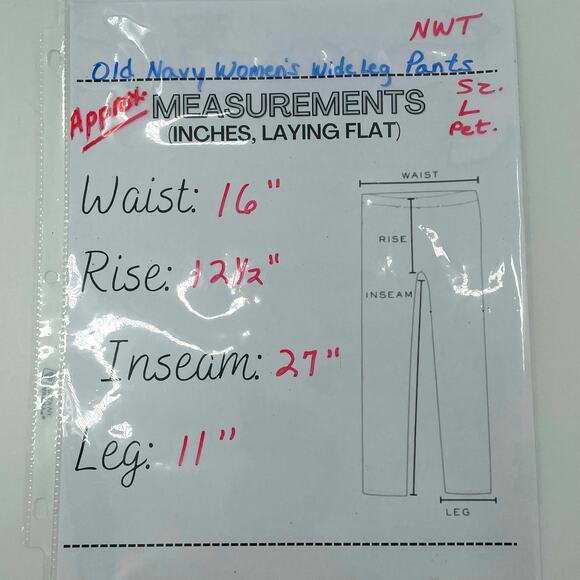 NWT
Old Navy Women's Wide Leg Pants
Approx. MEASUREMENTS
Sz. L Pet.
(INCHES, LAYING FLAT)
Waist: 16"
Rise: 12 1/2"
Inseam: 27"
Leg: 11"
WAIST
RISE
INSEAM
LEG